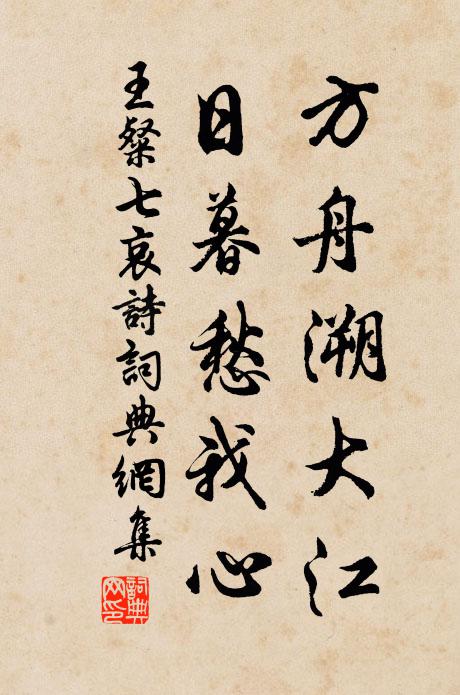 方舟溯大江
日暮愁我心
王粲七哀詩詞典網集
詞典網印